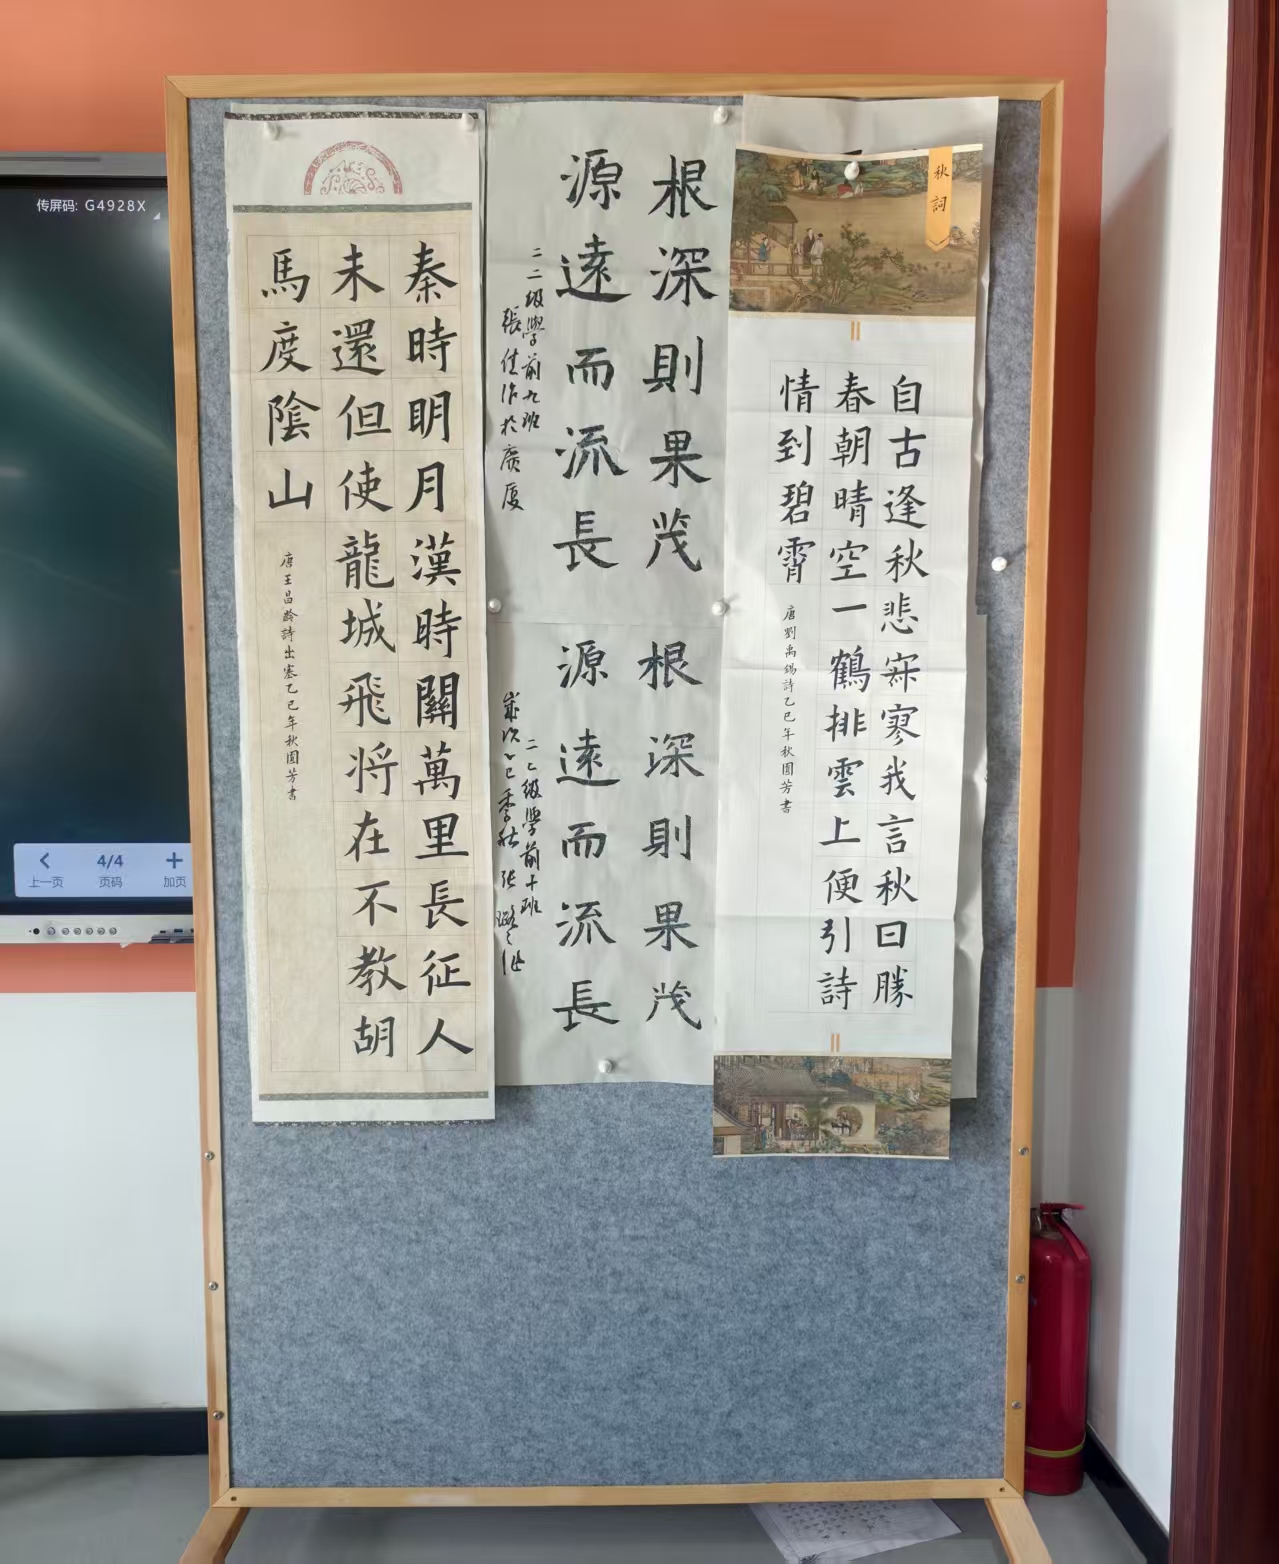 传屏码: G4928X
上一页
4/4
页码
加页
秋詞
自古逢秋悲寂寥我言秋日勝
春朝晴空一鶴排雲上便引詩
情到碧霄
唐劉禹錫詩乙巳年秋圓芳書
根深則果茂
源遠而流長
二二级學前九班
張佳作於廣厦
根深則果茂
源遠而流長
二二级學前十班
歲次乙巳季秋張
秦時明月漢時關萬里長征人
未還但使龍城飛将在不教胡
馬度陰山
唐王昌齡詩出塞乙巳年秋圓芳書